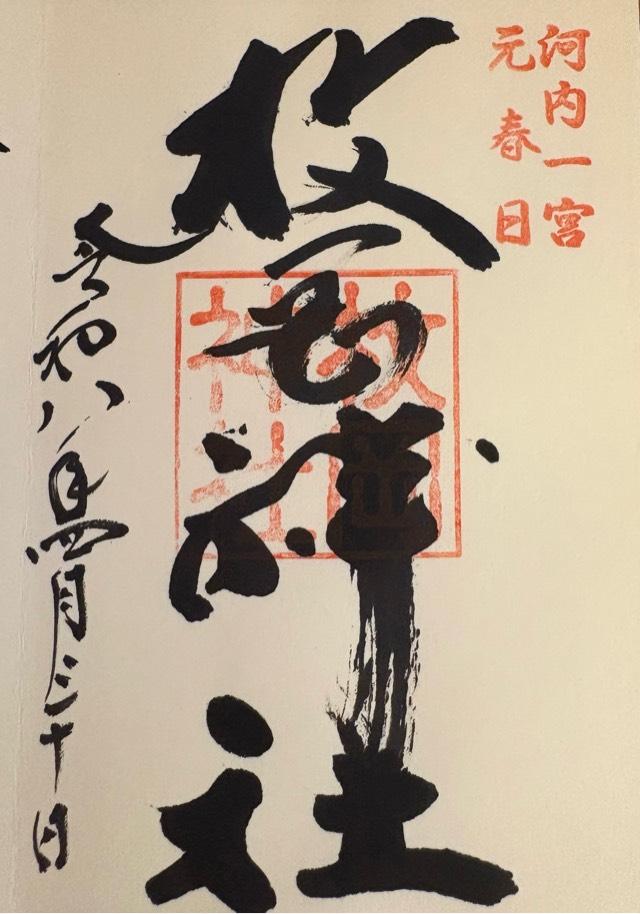 河内一宮
元春日
枚岡神社
枚岡
神社
令和八年四月三十日